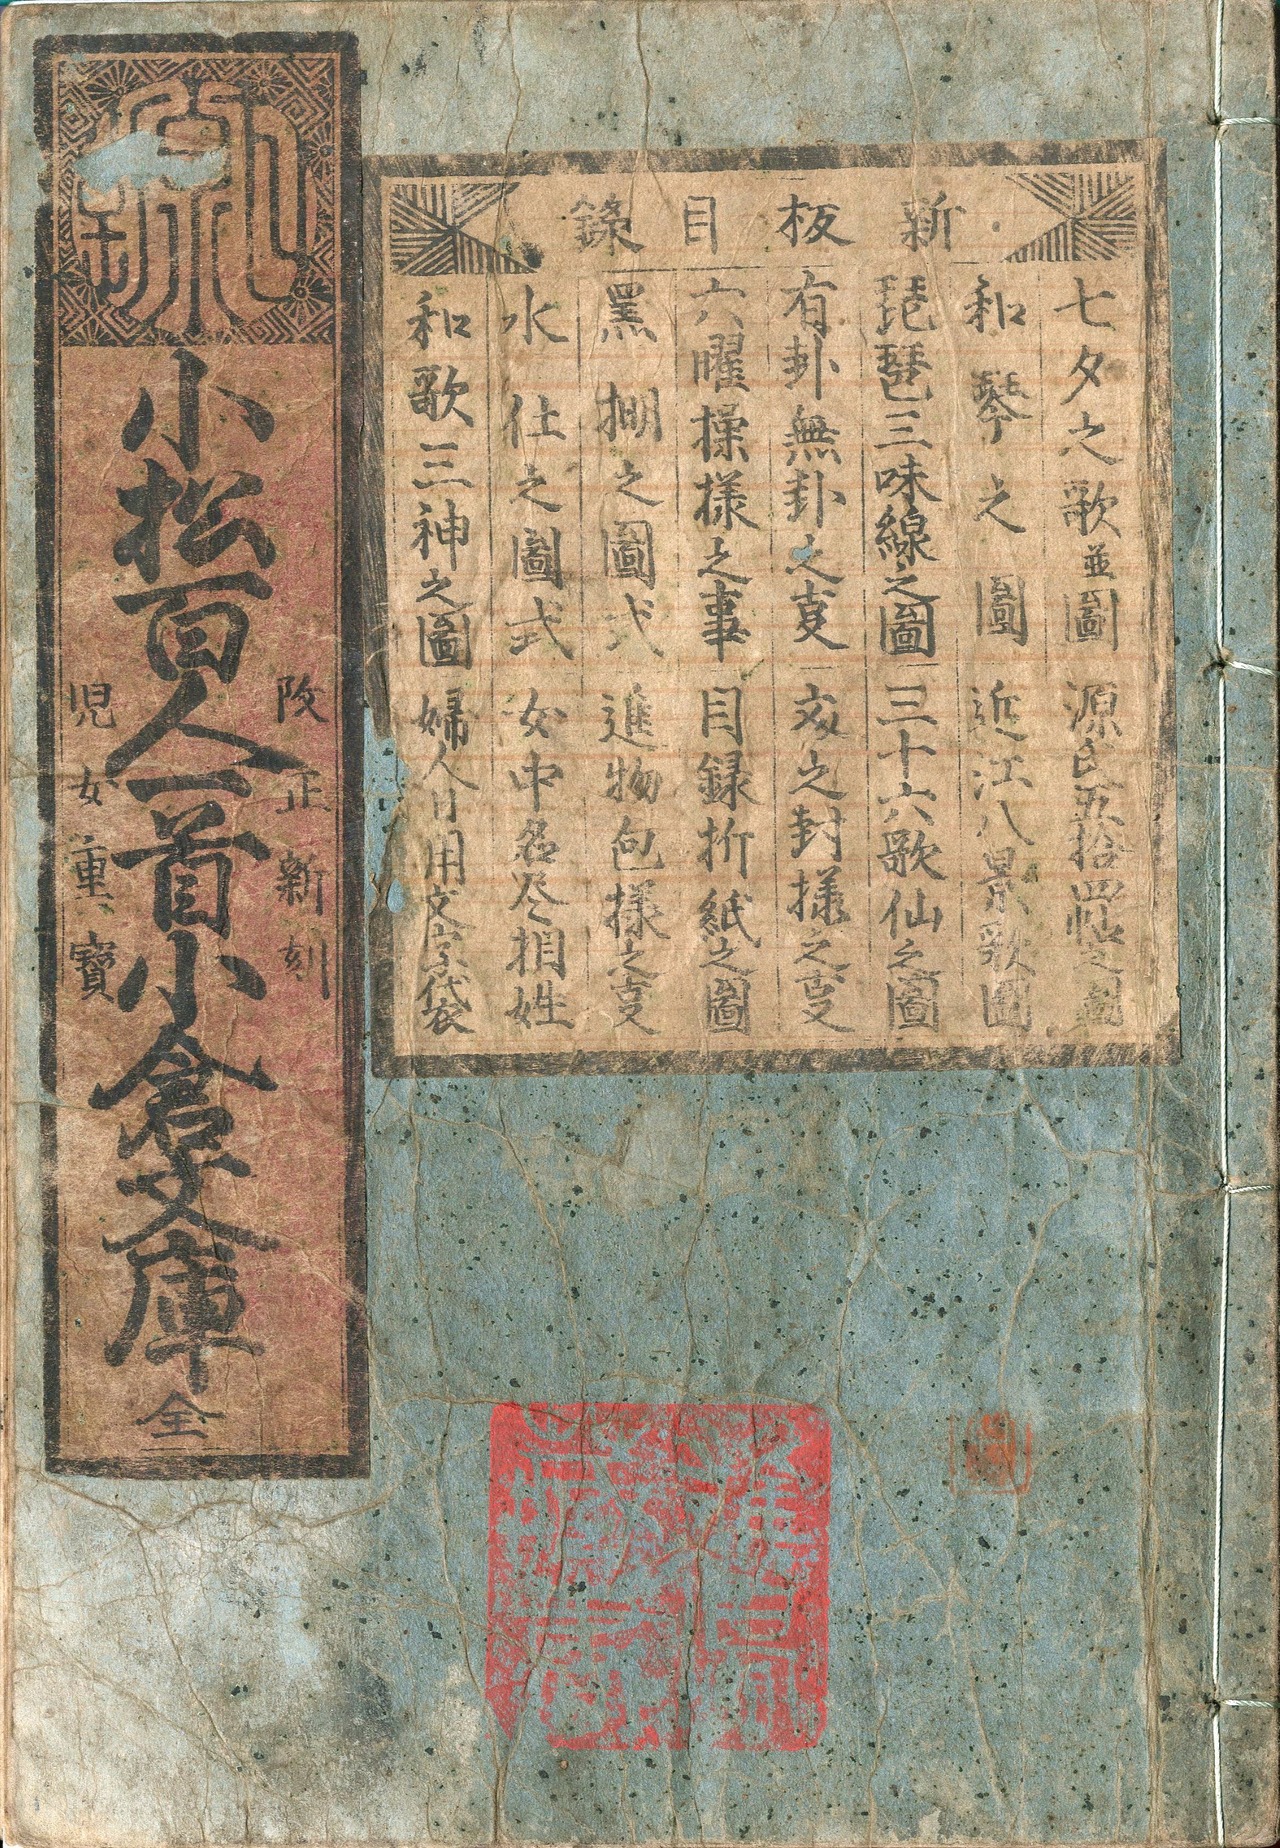 新板目錄
七夕之歌並圖
源氏五拾四帖之圖
和琴之圖
近江八景歌圖
琵琶三味線之圖
三十六歌仙之圖
有卦無卦之㕝
文之封様之㕝
六曜操様之事
目録折紙之圖
黒棚之圖式
進物包様之㕝
水仕之圖式
女中名尽相姓
和歌三神之圖
婦人日用文字袋
改正新刻
小松百人一首小倉文庫
全
児女重寶